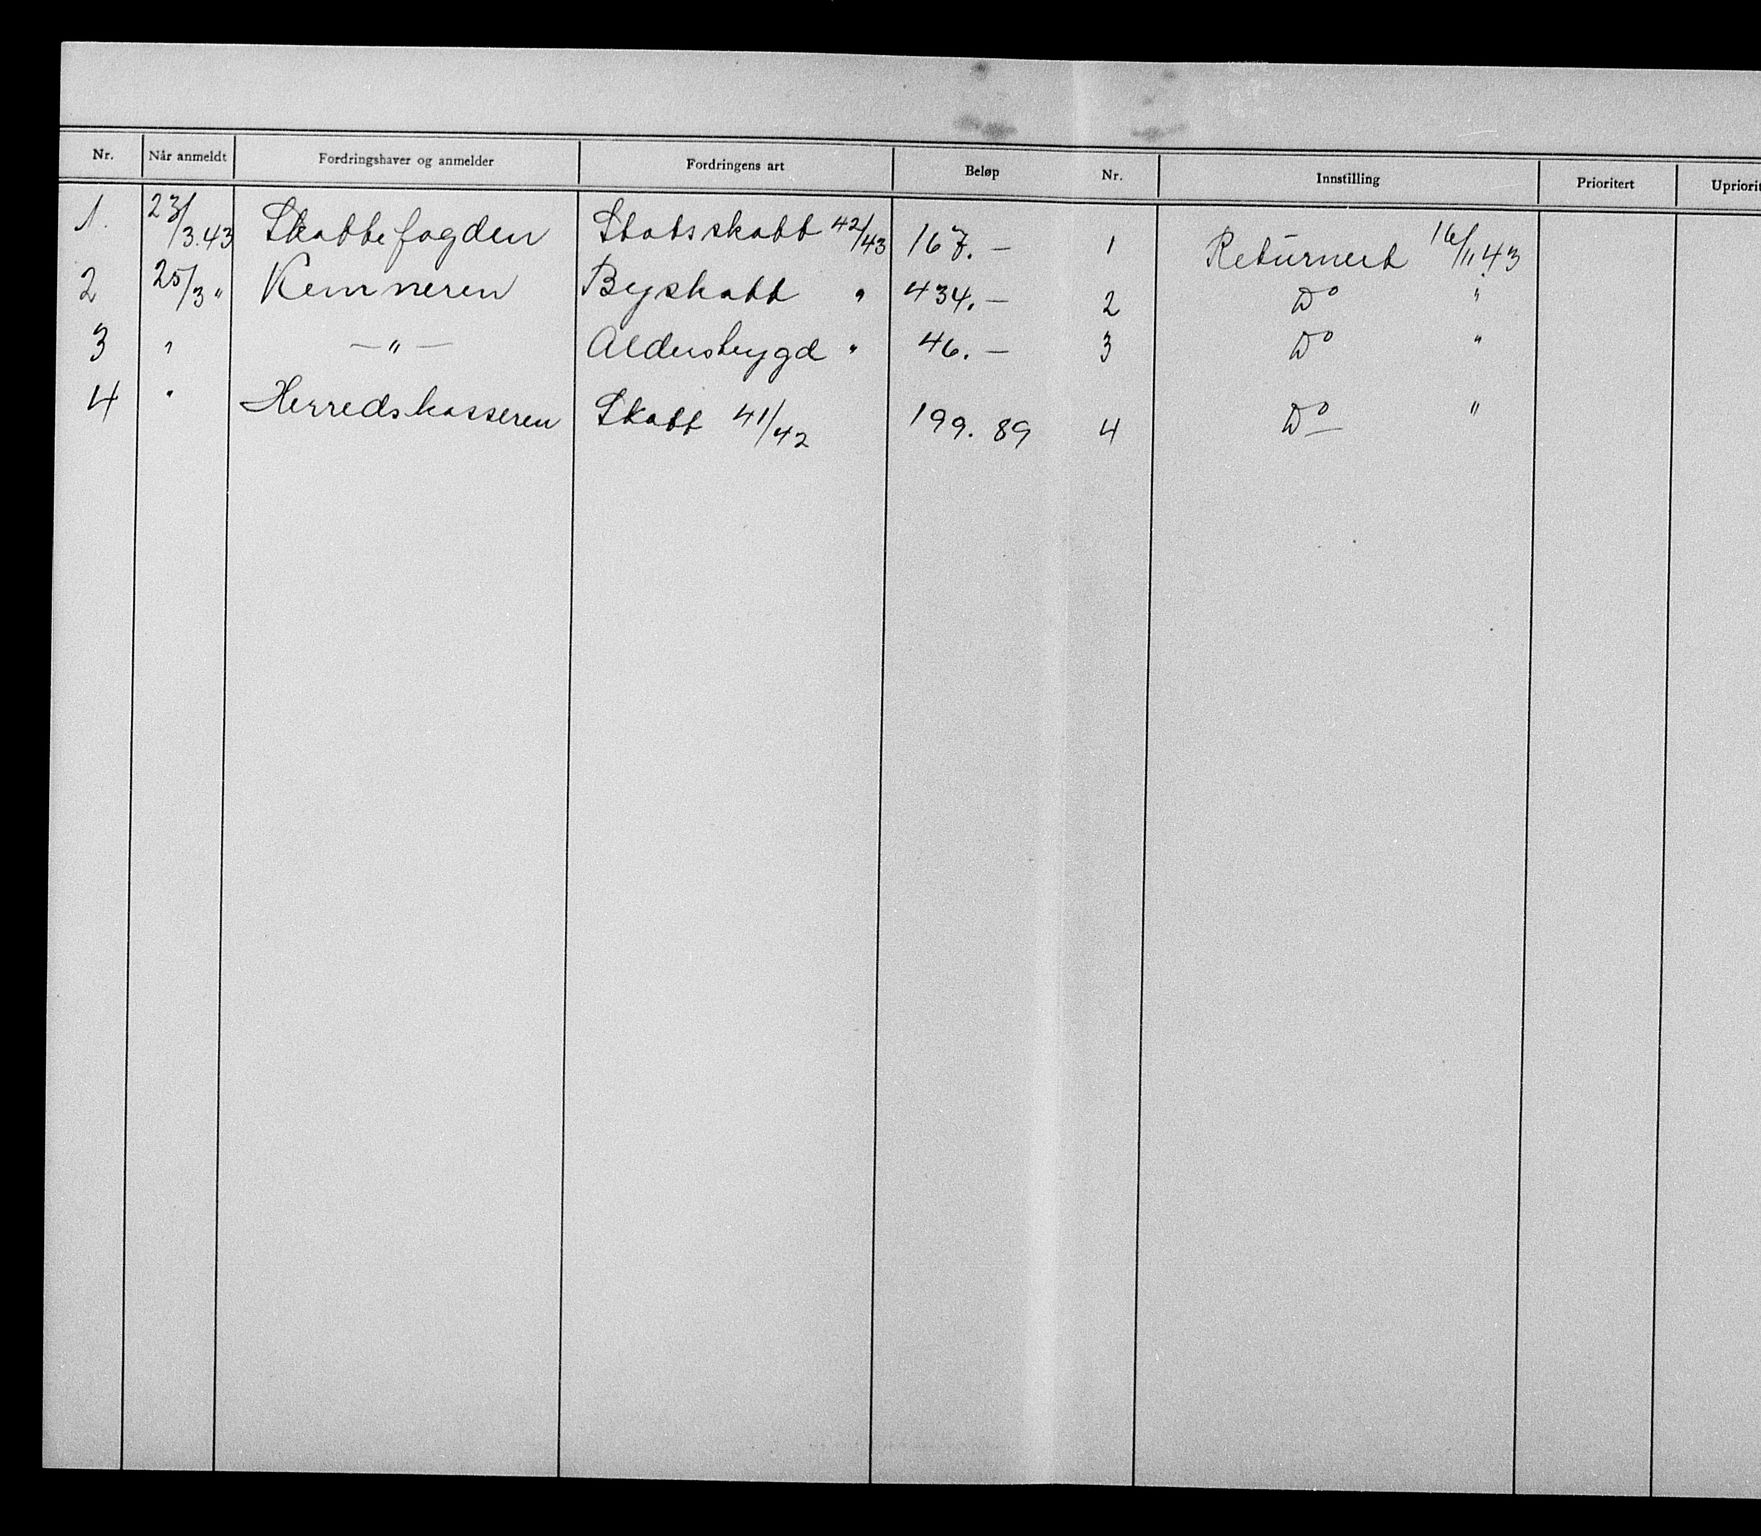 Nr. Når anmeldt Fordringshaver og anmelder Fordringens art Beløp Nr. Innstilling Prioritert Upriorit
1. 23/3.43 Skattefogden Statsskatt 42/43 167.— 1 Returnert 16/11 43
2 25/3 " Kemneren Byskatt " 434.— 2 Do "
3 " —"— Alderstrygd " 46.— 3 Do "
4 " Herredskasseren Skatt 41/42 199.89 4 Do "